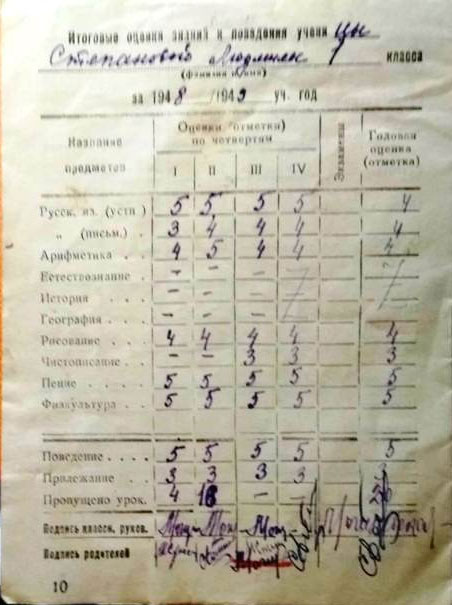 Итоговые оценки знаний и поведения учени цы
Степановой Людмилы 1 класса
(фамилия и имя)
за 1948/1949 уч. год
Название предметов
Оценки (отметки) по четвертям
Экзамены
Годовая оценка (отметка)
I II III IV
Русск. яз. (устн.) 5 5 5 5 4
„ (письм.) . 3 4 4 4 4
Арифметика . . 4 5 4 4 4
Естествознание . – – –
История . . . – – –
География . . . – – –
Рисование . . . 4 4 4 4 4
Чистописание . . – – 3 3 3
Пение . . . . 5 5 5 5 5
Физкультура . . 5 5 5 5 5
Поведение . . . 5 5 5 5 5
Прилежание . . 3 3 3 3 3
Пропущено урок. 4 –
Подпись классн. руков.
Подпись родителей
10